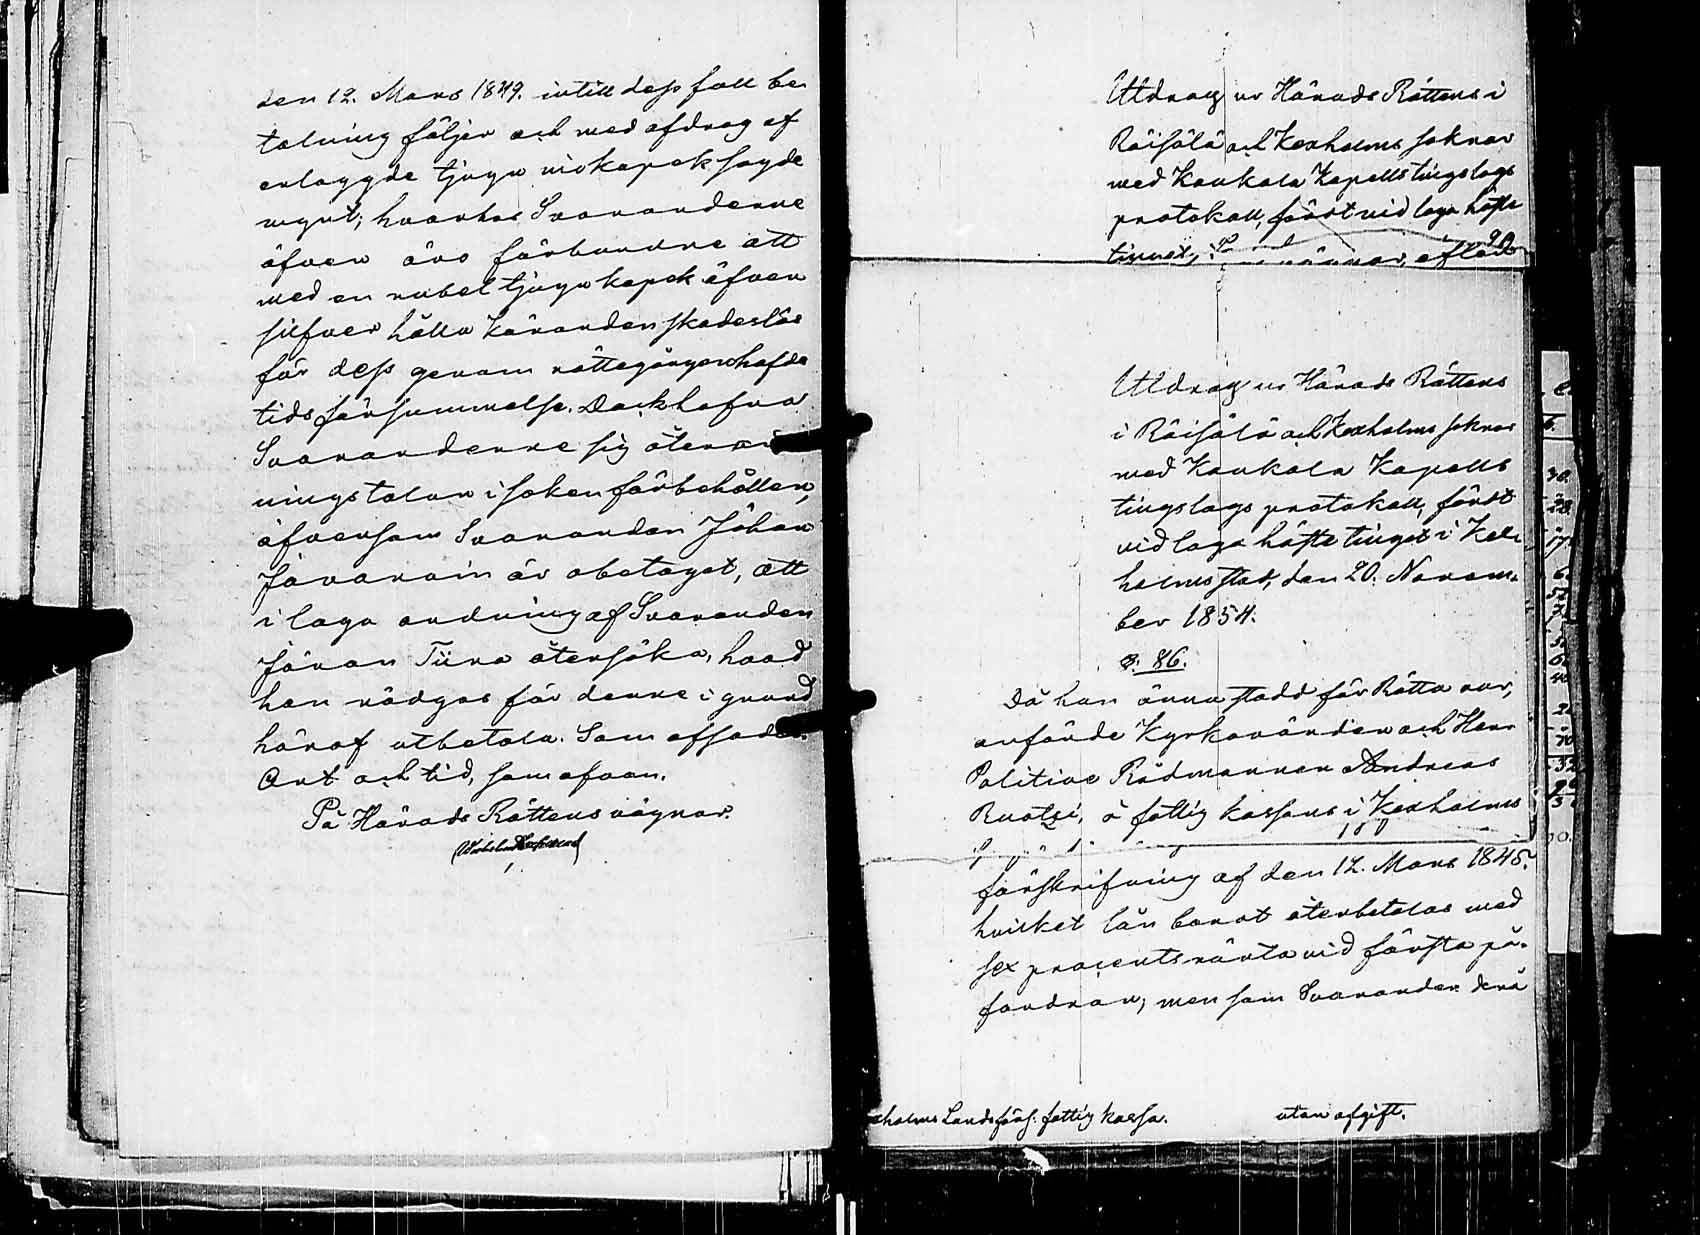 den 12. Mars 1849. intill dess full be-
talning följer och med afdrag af
erlaggde tjugu nio kopek sagde
mynt; hvarhos Svarandene
äfven äro förbundne att
med en rubel tjugu kopek äfven
silfver hålla Käranden skadeslös
för dess genom rättegången hafde
tidsförsummelse. Dock hafva
Svarandene sig återvin-
ningstalan i saken förbehållen,
äfvensom Svaranden Johan
Javanain är obetaget, att
i laga ordning af Svaranden
Jöran Tiira återsöka, hvad
han nödgas för denne i grund
häraf utbetala. Som afsades.
Ort och tid, som ofvan.
På Härads Rättens vägnar:
Utdrag ur Härads Rättens i
Räisälä och Kexholms soknar
med Kaukola Kapells tingslags
protokoll, fördt vid laga höste
tinget i
Utdrag ur Härads Rättens
i Räisälä och Kexholms soknar
med Kaukola Kapells
tingslags protokoll, fördt
vid laga höste tinget i Kex-
holms stad, den 20. Novem-
ber 1854.
§: 86.
Då han ännu stadd för Rätta var,
anförde Kyrkovärden och Herr
Politiae Rådmannen Andreas
Ruotzi, å fattig kassans i Kexholms
förskrifning af den 12. Mars 1845.
hvilket lån borat återbetalas med
sex procents ränta vid första på-
fordran; men som Svaranden derå
exholms Landsförs: fattig kassa. utan afgift.